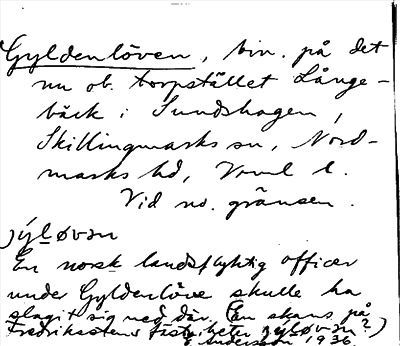 Gyldenlöven, bin. på det
nu ob. torpstället Långe-
bäck i Sundshagen,
Skillingmarks sn, Nord-
marks hd, Vrml l.
Vid no. gränsen.
jýløvən
En norsk landsflyktig officer
under Gyldenlöve skulle ha
slagit sig ned där. (En skans på
Fredriksstens fästn. heter jýløvən?)
E. Andersson 1936.